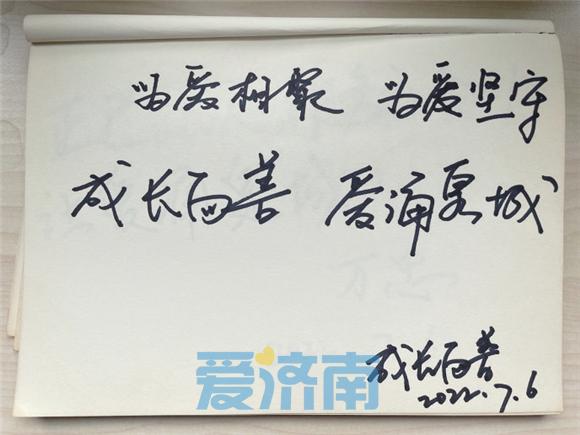 为爱相聚 为爱坚守
成长向善 爱涌泉城
成长向善
2022.7.6
爱济南